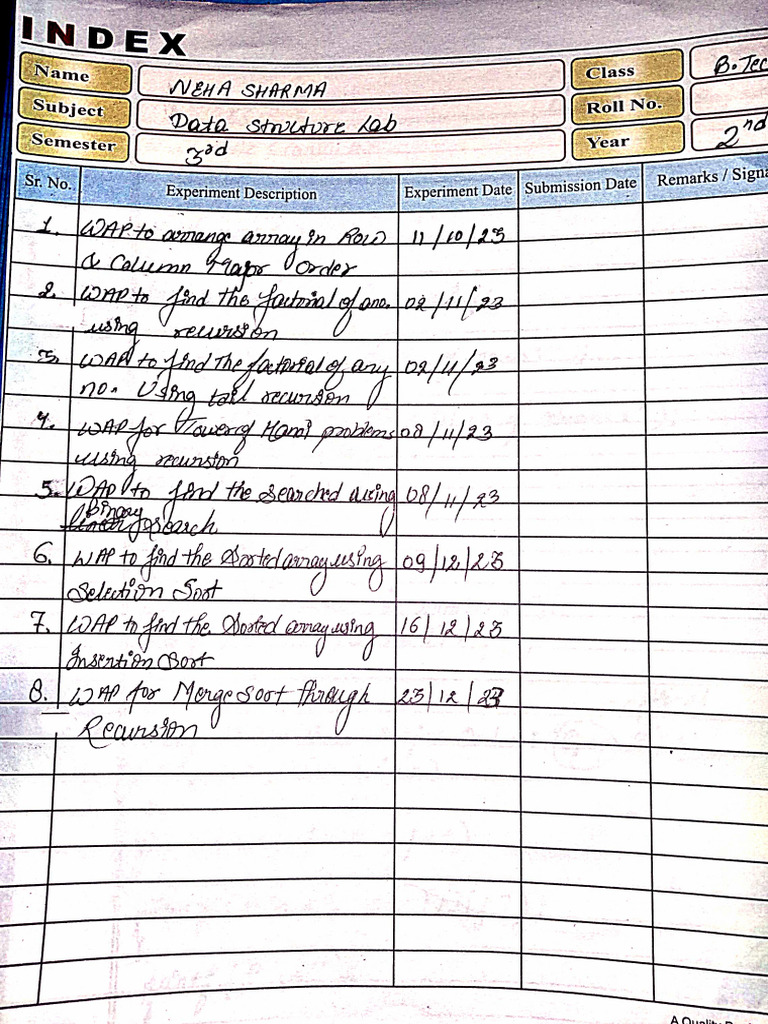 INDEX
Name NEHA SHARMA Class B.Tec
Subject Data Structure Lab Roll No.
Semester 3rd Year 2nd
Sr. No. Experiment Description Experiment Date Submission Date Remarks / Signa
1. WAP to arrange array in Row 11/10/23
& Column Major Order
2. WAP to find the factorial of a no. 02/11/23
using recursion
3. WAP to find the factorial of any 02/11/23
no. Using tail recursion
4. WAP for Tower of Hanoi problems 08/11/23
using recursion
5. WAP to find the searched using 08/11/23
Binary
search
6. WAP to find the Sorted array using 09/12/23
Selection Sort
7. WAP to find the Sorted array using 16/12/23
Insertion Sort
8. WAP for Merge Sort through 23/12/23
Recursion
A Quality